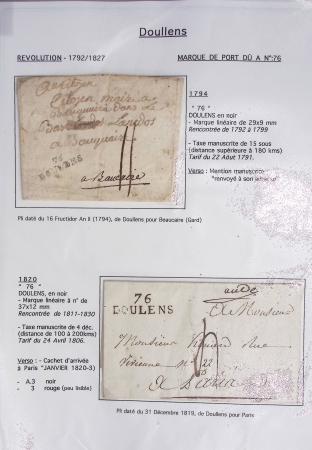 Doullens
REVOLUTION - 1792/1827
MARQUE DE PORT DÛ A N°:76
1794
" 76 "
DOULLENS en noir
- Marque linéaire de 29x9 mm
Rencontrée de 1792 à 1799
- Taxe manuscrite de 15 sous
(distance supérieure à 180 kms)
Tarif du 22 Aôut 1791.
Verso : Mention manuscrite
"renvoyé à son
a Beaucaire
Pli daté du 16 Fructidor An II (1794), de Doullens pour Beaucaire (Gard)
1820
" 76 "
DOULLENS, en noir
- Marque linéaire à n° de
37x12 mm
Rencontrée de 1811-1830
- Taxe manuscrite de 4 déc.
(distance de 100 à 200kms)
Tarif du 24 Avril 1806.
Verso : - Cachet d'arrivée
à Paris "JANVIER 1820-3)
- A.3 noir
- 3 rouge (peu lisible)
76
DOULLENS
A Monsieur
Monsieur rue
n° 22
a Paris
Pli daté du 31 Décembre 1819, de Doullens pour Paris